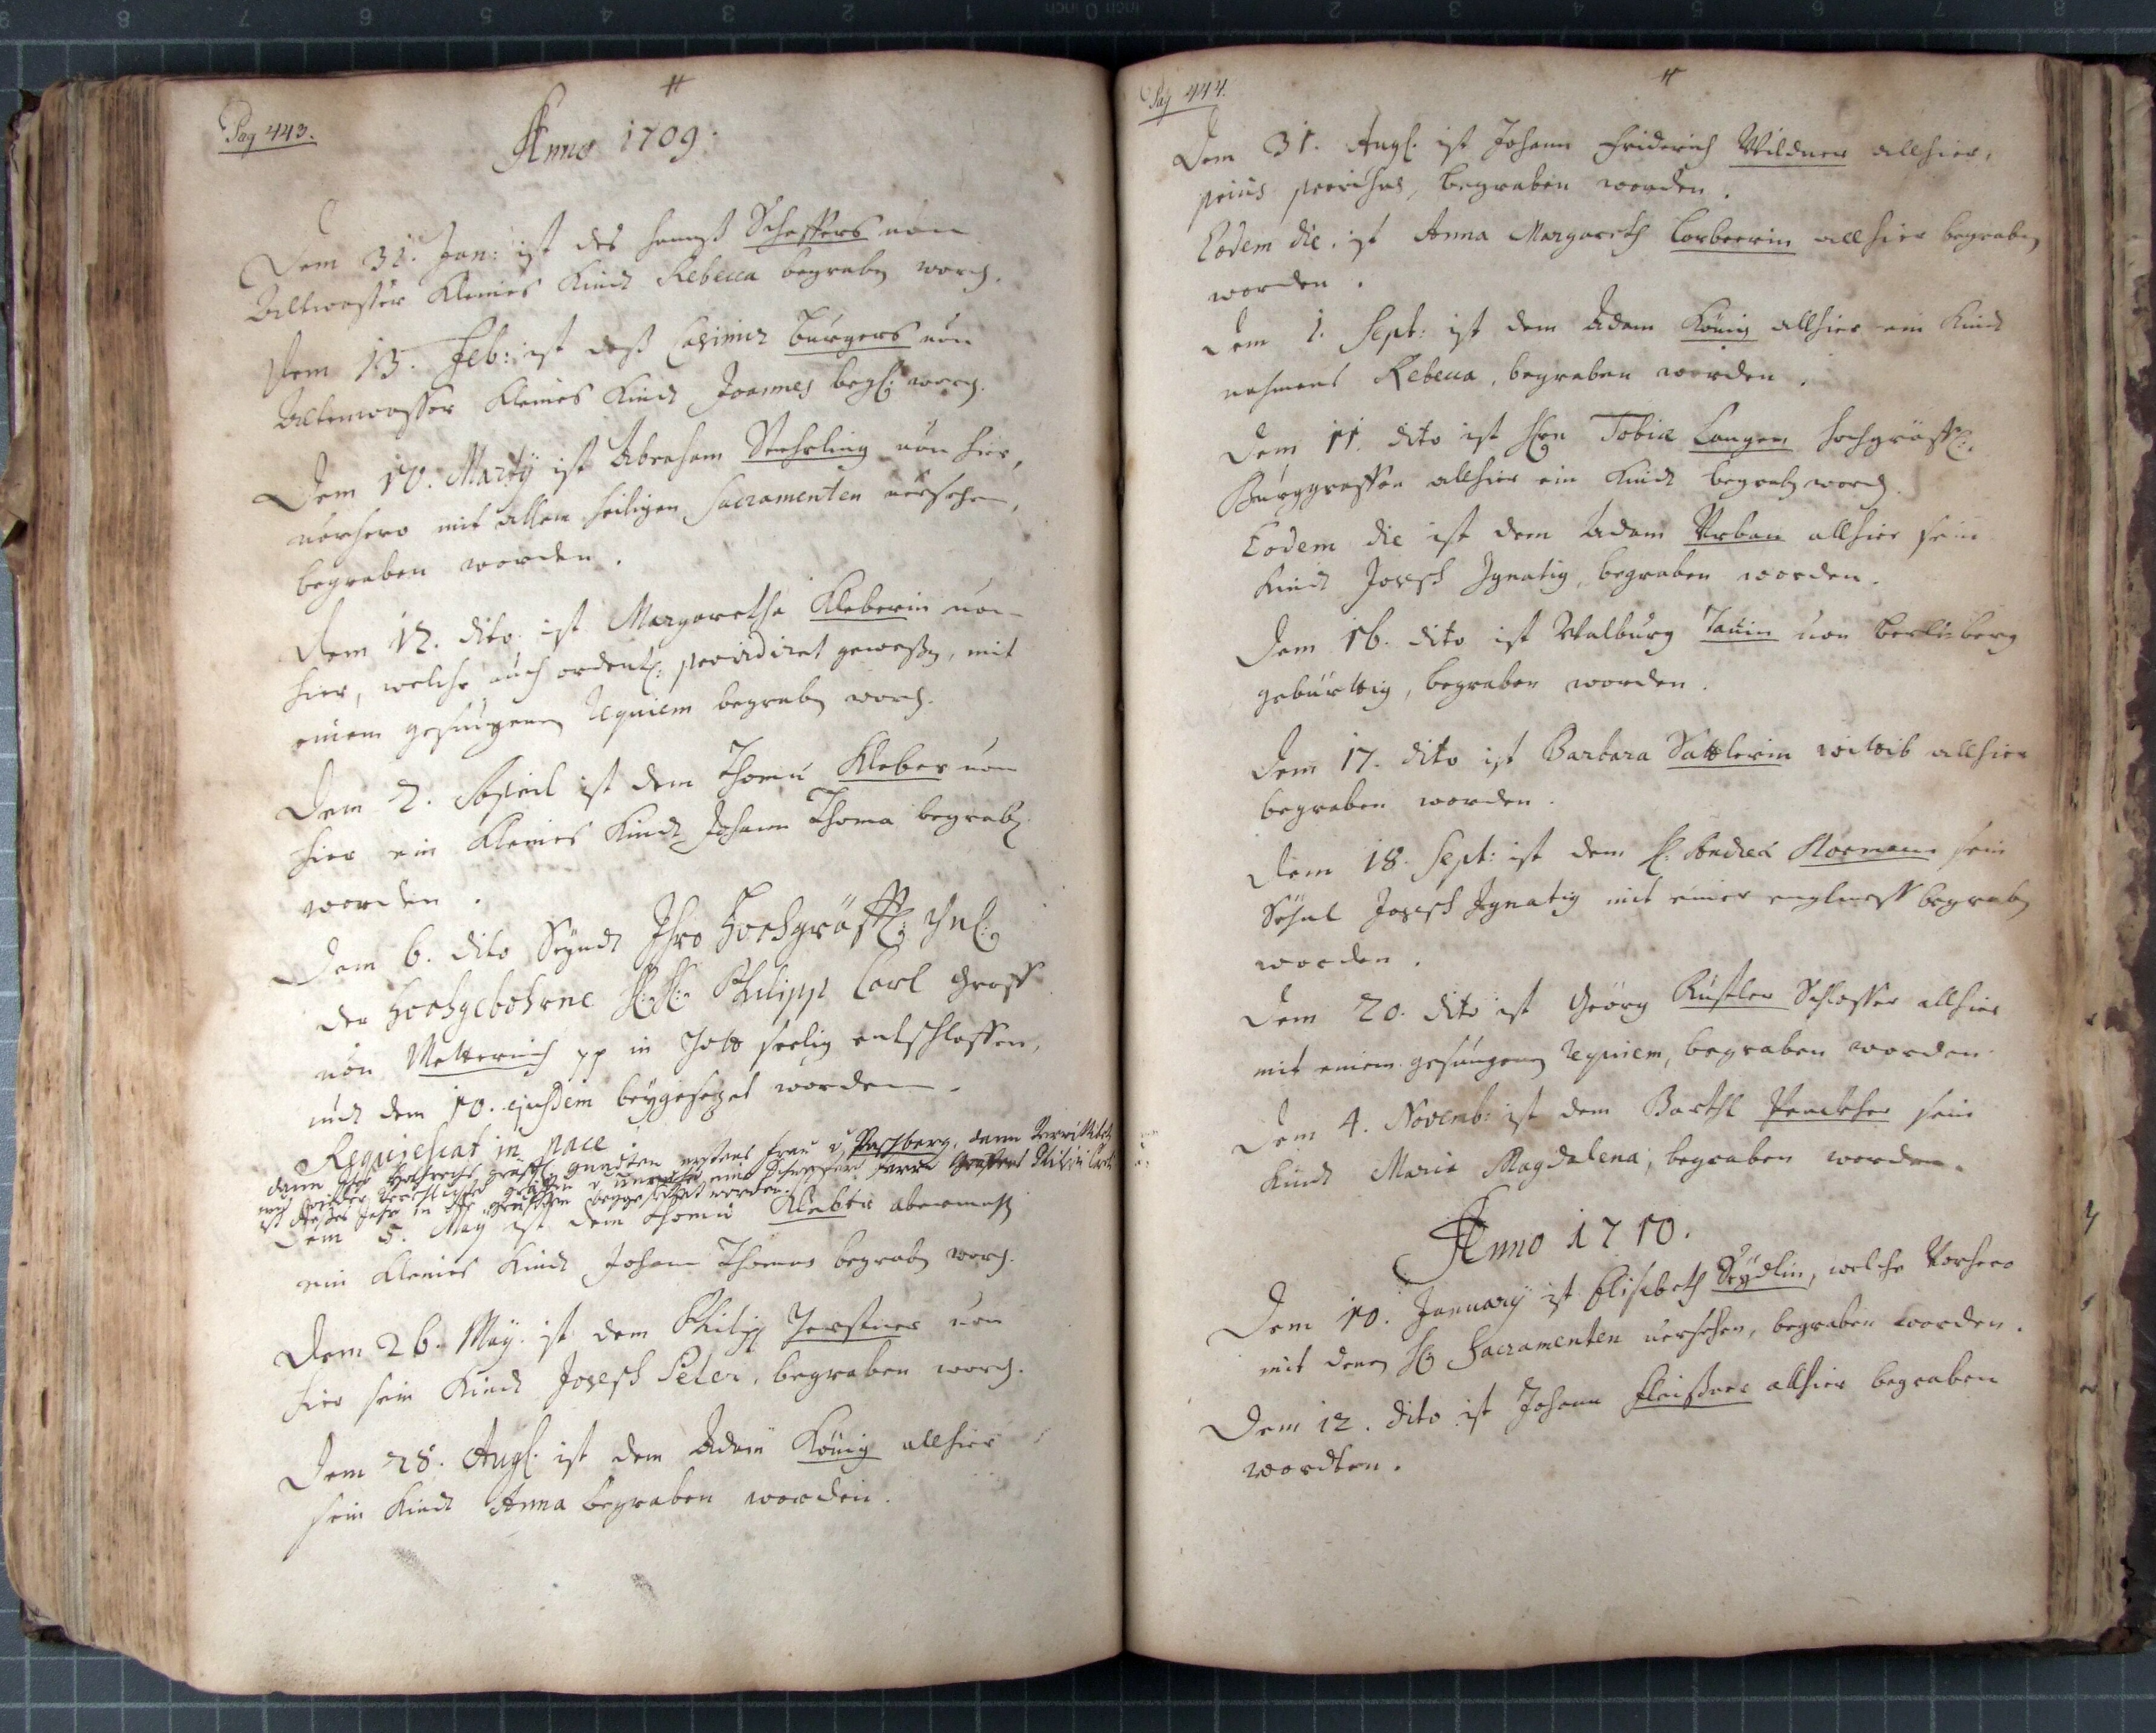 Pag 443.
Anno 1709.
Dem 31. Jan: ist des hannß Schaffers von
Altwasser kleines Kindt Rebecca begraben word.
Dem 13. Feb: ist deß Casimir Burgers von
Altenwasser kleines Kindt Joannes begr: word.
Dem 10. Martÿ ist Abraham Stehrling von hier,
vorhero mit allen heiligen Sacramenten versehen,
begraben worden.
Dem 12. dito ist Margaretha Kleberin von
hier, welche auch ordentl: providiret gewesen, mit
einem gesungenen Requiem begraben word.
Dem 2. April ist dem Thomä Kleber von
hier ein kleines Kindt Johann Thoma begraben
worden.
Dem 6. dito Seyndt Ihro Hochgräffl: Gnl:
der Hochgebohrne H: H: Philipp Carl Graff
von Metternich pp in Gott seelig entschlaffen,
undt dem 10. ejusdem beygesezet worden.
Requiescat in pace
dann Ihro Hochreichs gräffl. gnadten Frau v
ist dießes Jahr in die beygesetzet worden.
Dem 5. May ist dem Thomä Kleber abermahl
ein kleines Kindt Johann Thomas begraben word.
Dem 26. May ist dem Philipp Gerstner von
hier sein Kindt Joseph Peter, begraben word.
Dem 28. Aug: ist dem Adam König allhier
sein Kindt Anna begraben worden.
Pag 444.
Dem 31. Aug: ist Johann Friderich Wildner allhier,
prius provisus, begraben worden.
Eodem die ist Anna Margareth Corbeerin allhier begraben
worden.
Dem 1. Sept: ist dem Adam König allhier ein Kindt
nahmens Rebecca, begraben worden.
Dem 11. dito ist Hrn Tobiæ Langen hochgräffl:
Burggraffen allhier ein Kindt begraben word
Eodem die ist dem Adam Urban allhier sein
Kindt Joseph Ignatig, begraben worden.
Dem 16. dito ist Walburg Tauin von
gebürttig, begraben worden.
Dem 17. dito ist Barbara Sattlerin wittib allhier
begraben worden.
Dem 18. Sept: ist dem H: Andreä Kormann sein
Söhnl Joseph Ignatig mit einer begraben
worden.
Dem 20. dito ist Georg Küstler Schlosser allhier
mit einem gesungenen Requiem, begraben worden
Dem 4. Novemb: ist dem Barthl sein
Kindt Maria Magdalena, begraben worden.
Anno 1710.
Dem 10. January ist Elisabeth Seÿdlin, welche Vorhero
mit denen Hl: Sacramenten versehen, begraben worden.
Dem 12. dito ist Johann Fleißner allhier begraben
wordten.